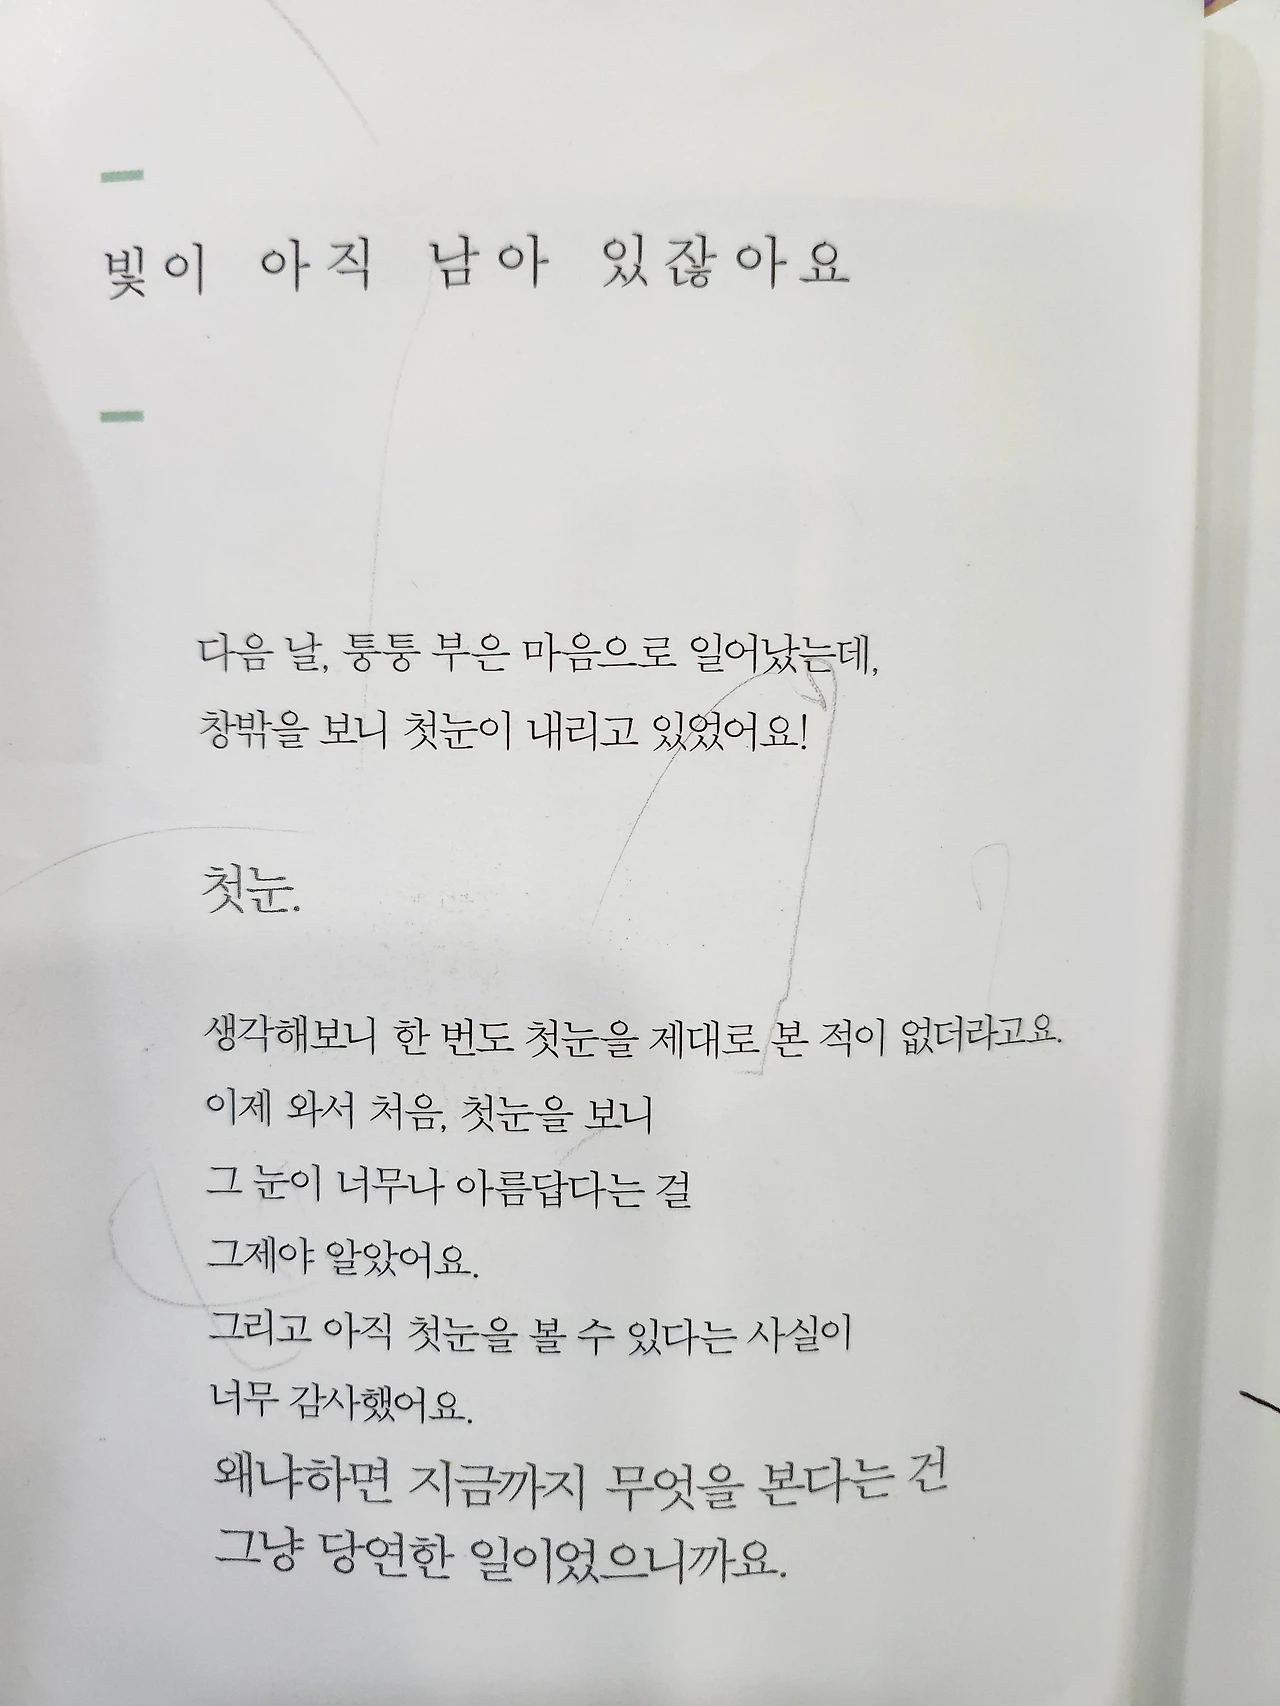 빛이 아직 남아 있잖아요
다음 날, 퉁퉁 부은 마음으로 일어났는데,
창밖을 보니 첫눈이 내리고 있었어요!
첫눈.
생각해보니 한 번도 첫눈을 제대로 본 적이 없더라고요.
이제 와서 처음, 첫눈을 보니
그 눈이 너무나 아름답다는 걸
그제야 알았어요.
그리고 아직 첫눈을 볼 수 있다는 사실이
너무 감사했어요.
왜냐하면 지금까지 무엇을 본다는 건
그냥 당연한 일이었으니까요.